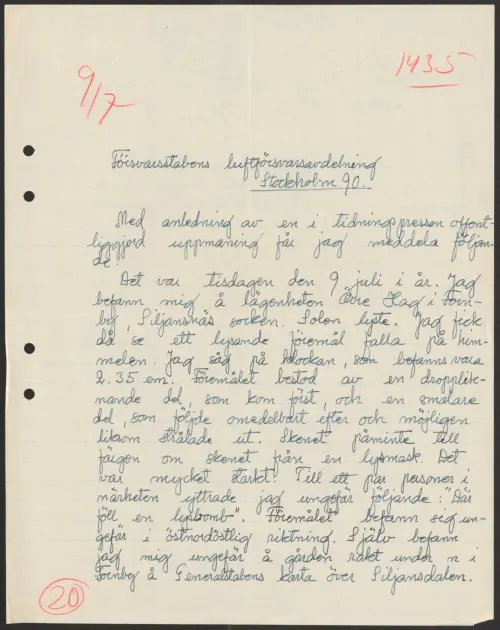 9/7
1435
Försvarsstabens luftförsvarsavdelning
Stockholm 90.
Med anledning av en i tidningspressen offent-
liggjord uppmaning får jag meddela följan-
de.
Det var tisdagen den 9 juli i år. Jag
befann mig å lägenheten Övre Hag i Forn-
by, Siljansnäs socken. Solen lyste. Jag fick
då se ett lysande föremål falla på him-
melen. Jag såg på klockan, som befanns vara
2.35 em. Föremålet bestod av en dropplik-
nande del, som kom först, och en smalare
del, som följde omedelbart efter och möjligen
liksom strålade ut. Skenet påminte till
färgen om skenet från en lysmask. Det
var mycket starkt. Till ett par personer i
närheten yttrade jag ungefär följande: "Där
föll en lysbomb". Föremålet befann sig un-
gefär i östnordöstlig riktning. Själv befann
jag mig ungefär å gården rakt under n i
Fornby å Generalstabens karta över Siljansdalen.
20